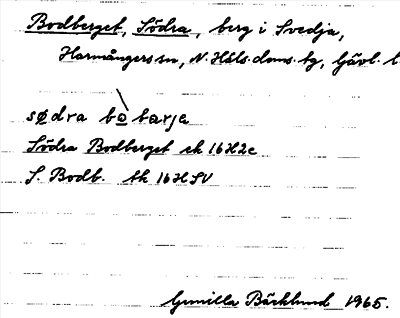 Bodberget, Södra, berg i Svedja,
Harmångers sn, N. Häls. doms. bg, Gävl. l
sødra bobarje
Södra Bodberget ek 16H2c
S. Bodb. tk 16H SV
Gunilla Bäcklund 1965.